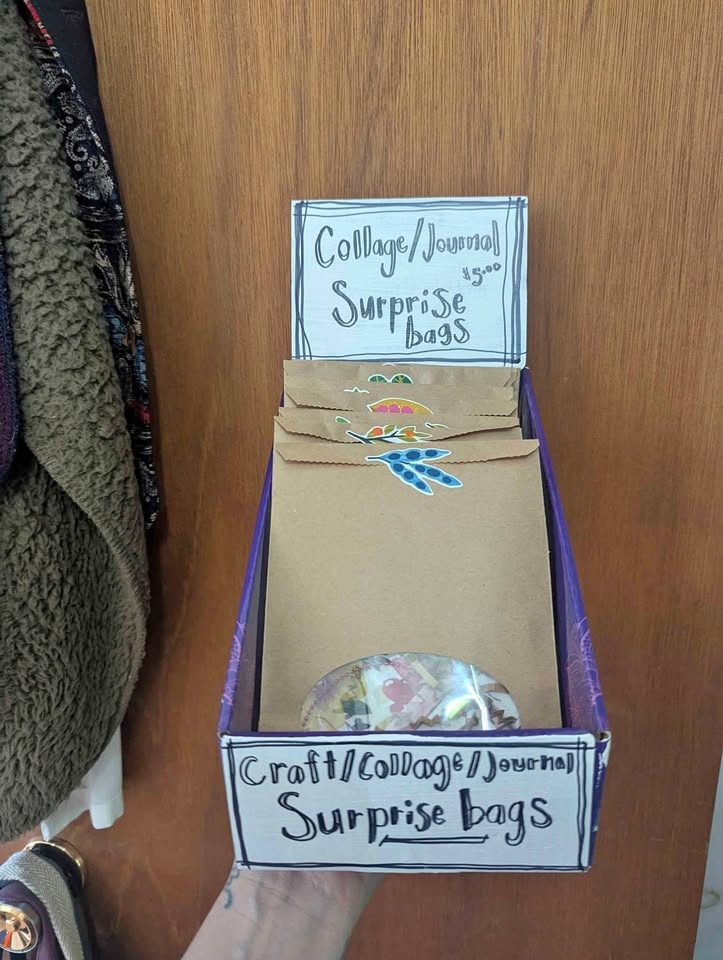 Collage/Journal
$5.00
Surprise
bags
Craft/Collage/Journal
Surprise bags